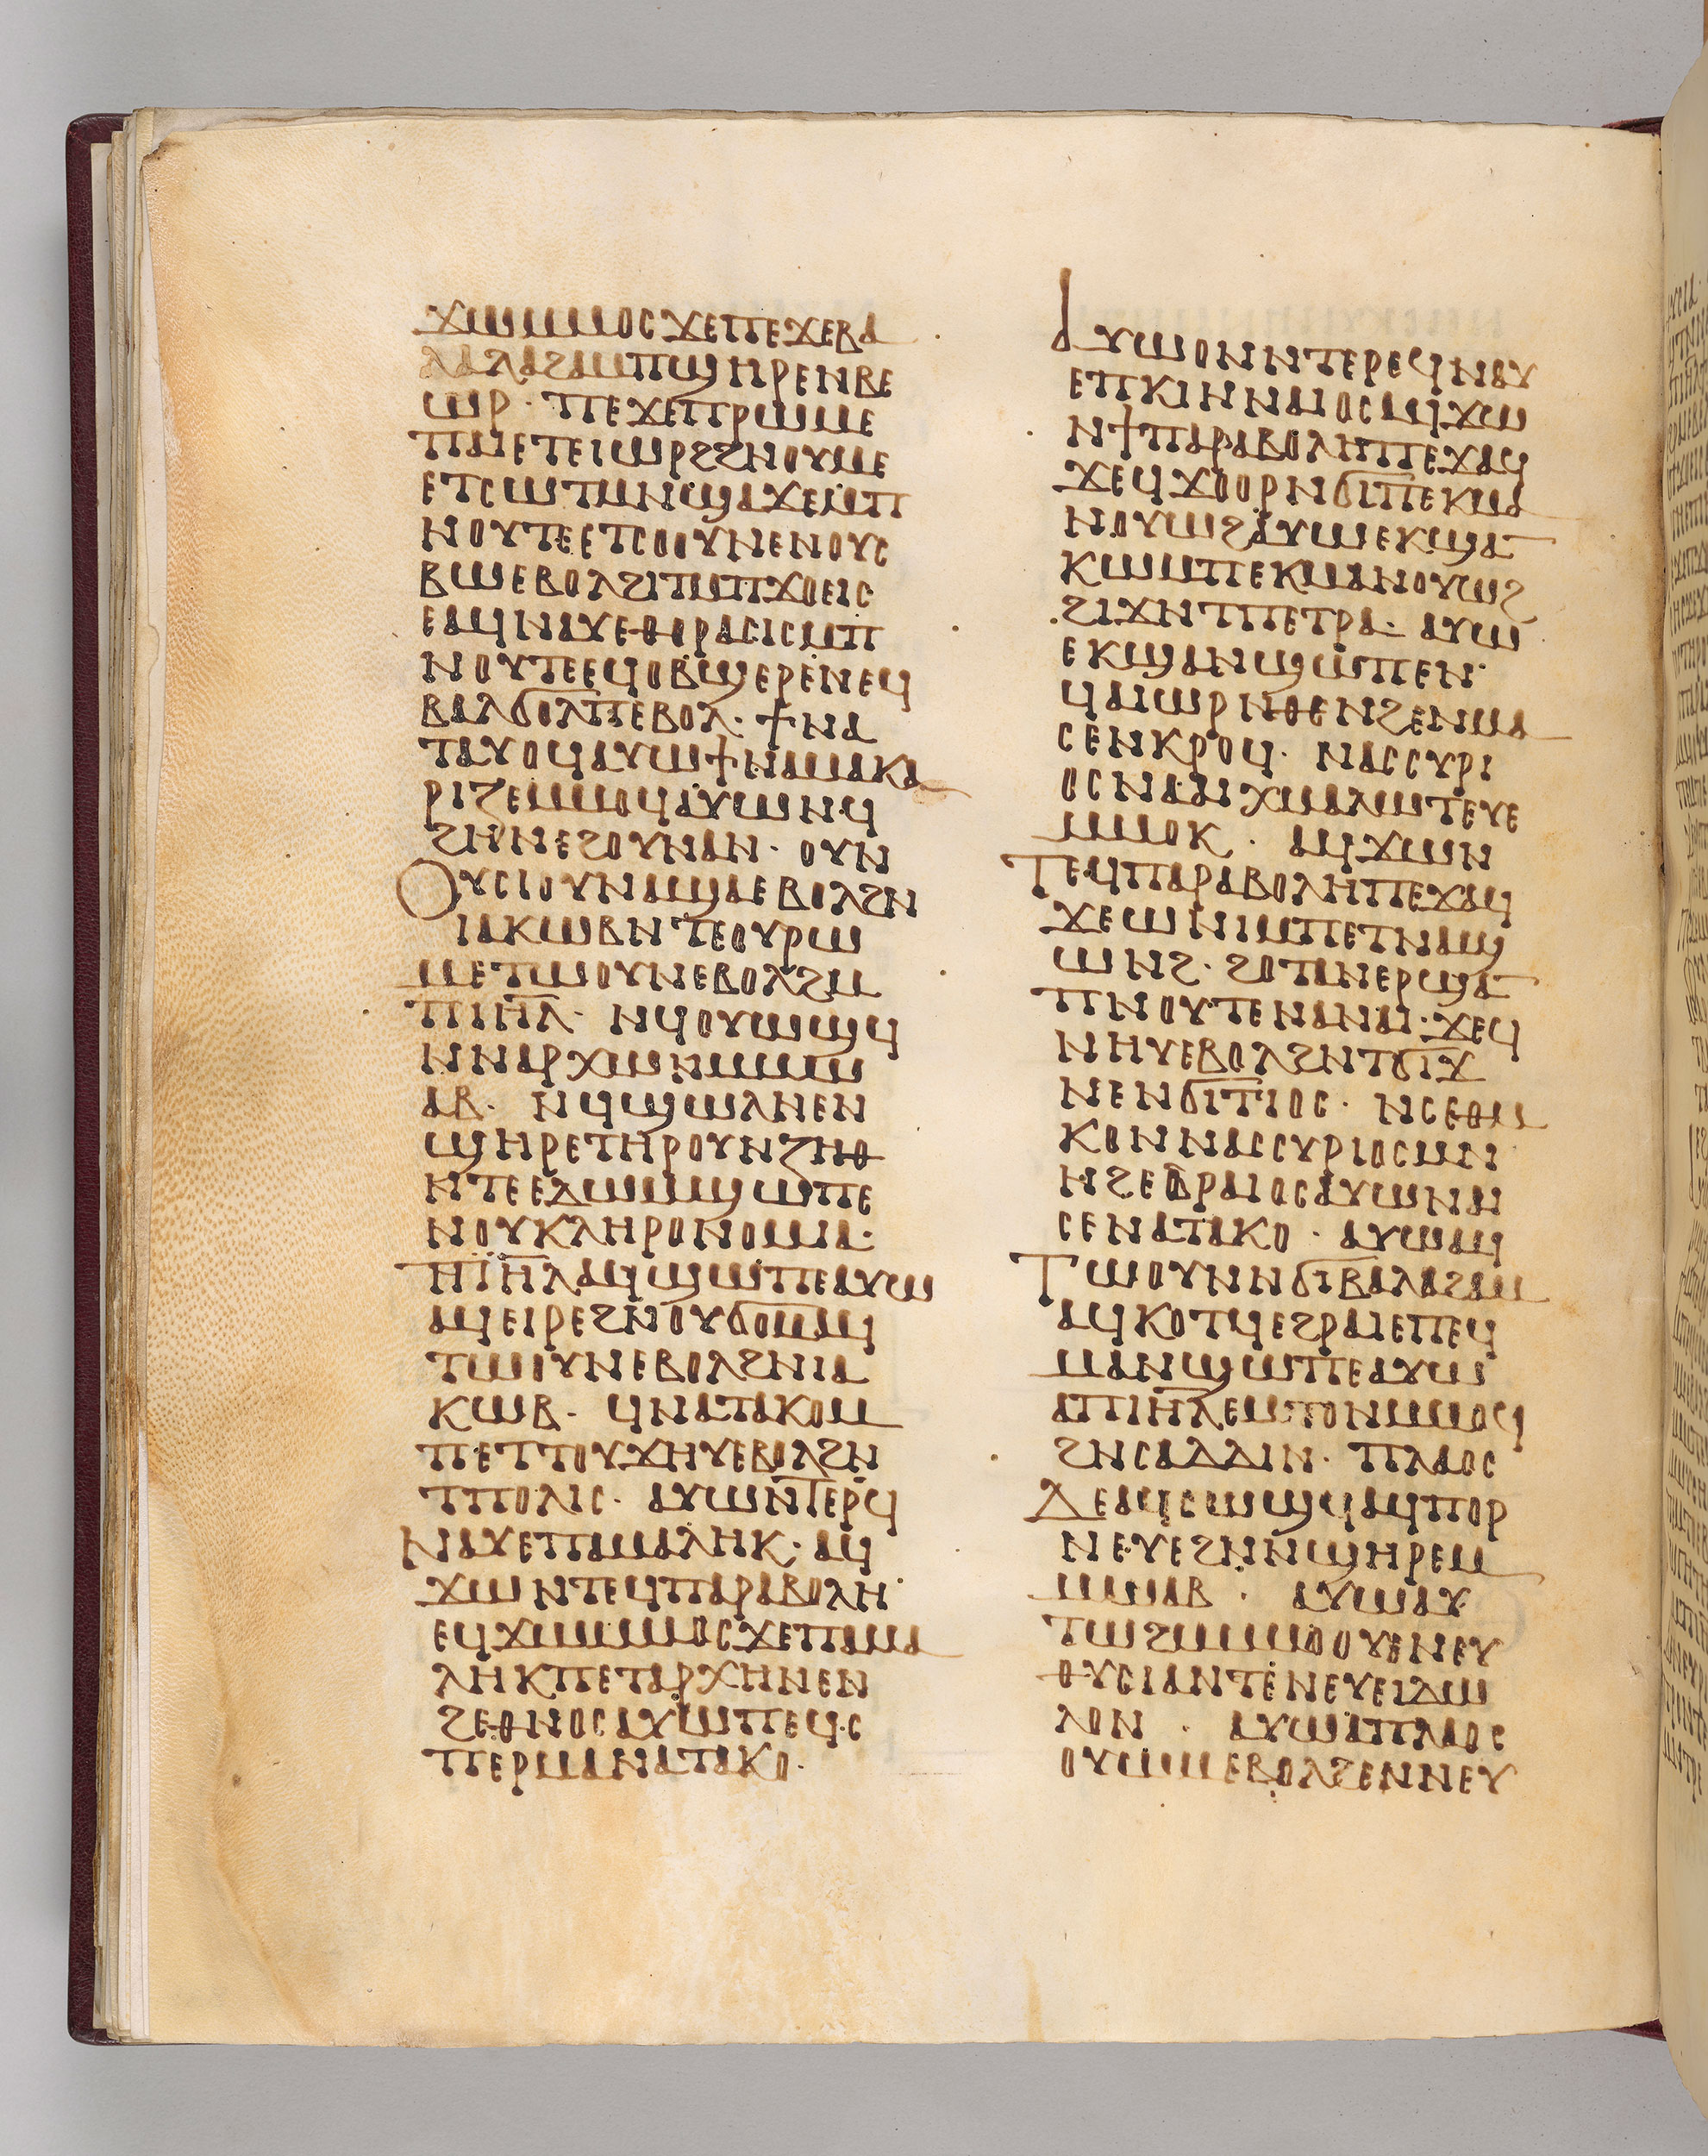 ϫⲱⲙⲙⲟⲥ ϫⲉⲡⲉϫⲉⲃⲁ
ⲗⲁⲗⲁϩⲁⲙⲡϣⲏⲣⲉⲛⲃⲉ
ⲱⲣ· ⲡⲉϫⲉⲡⲣⲱⲙⲉ
ⲡⲁⲓⲉⲧⲉⲓⲱⲣϩϩⲛⲟⲩⲙⲉ
ⲉⲧⲥⲱⲧⲙⲛϣⲁϫⲉⲙⲡ
ⲛⲟⲩⲧⲉⲉⲧⲥⲟⲟⲩⲛⲉⲛⲟⲩⲥ
ⲃⲱⲉⲃⲟⲗϩⲓⲧⲙⲡϫⲟⲉⲓⲥ
ⲉⲁϥⲛⲁⲩⲉⲑⲟⲣⲁⲥⲓⲥⲙⲡ
ⲛⲟⲩⲧⲉⲉϥⲟⲃϣⲉⲣⲉⲛⲉϥ
ⲃⲁⲗϭⲟⲗⲡⲉⲃⲟⲗ· ϯⲛⲁ
ⲧⲁⲩⲟϥⲁⲩⲱϯⲛⲁⲙⲁⲕⲁ
ⲣⲓⲍⲉⲙⲙⲟϥⲁⲩⲱⲛϥ
ϩⲏⲛⲉϩⲟⲩⲛⲁⲛ· ⲟⲩⲛ
ⲟⲩⲥⲓⲟⲩⲛⲁϣⲁⲉⲃⲟⲗϩⲛ
ⲓⲁⲕⲱⲃⲛⲧⲉⲟⲩⲣⲱ
ⲙⲉⲧⲱⲟⲩⲛⲉⲃⲟⲗϩⲙ
ⲡⲓⲏ̅ⲗ̅· ⲛϥⲟⲩⲱϣϥ
ⲛⲛⲁⲣⲭⲱⲛⲙⲙⲱ
ⲁⲃ· ⲛϥϣⲱⲗⲛⲉⲛ
ϣⲏⲣⲉⲧⲏⲣⲟⲩⲛⲥⲏⲑ
ⲛⲧⲉⲉⲇⲱⲙϣⲱⲡⲉ
ⲛⲟⲩⲕⲗⲏⲣⲟⲛⲟⲙⲓⲁ·
ⲡⲓⲏ̅ⲗ̅ⲁϥϣⲱⲡⲉⲁⲩⲱ
ⲁϥⲉⲓⲣⲉϩⲛⲟⲩϭⲟⲙⲁϥ
ⲧⲱⲟⲩⲛⲉⲃⲟⲗϩⲛⲓⲁ
ⲕⲱⲃ· ϥⲛⲁⲧⲁⲕⲟⲙ
ⲡⲉⲧⲧⲟⲩϫⲏⲩⲉⲃⲟⲗϩⲛ
ⲧⲡⲟⲗⲓⲥ· ⲁⲩⲱⲛⲧⲉⲣϥ
ⲛⲁⲩⲉⲡⲁⲙⲁⲗⲏⲕ· ⲁϥ
ϫⲱⲛⲧⲉϥⲡⲁⲣⲁⲃⲟⲗⲏ
ⲉϥϫⲱⲙⲙⲟⲥϫⲉⲡⲁⲙⲁ
ⲗⲏⲕⲡⲉⲧⲁⲣⲭⲏⲛⲉⲛ
ϩⲉⲑⲛⲟⲥⲁⲩⲱⲡⲉϥⲥ
ⲡⲉⲣⲙⲁⲛⲁⲧⲁⲕⲟ·
ⲁⲩⲱⲟⲛⲛⲧⲉⲣⲉϥⲛⲁⲩ
ⲉⲡⲕⲓⲛⲛⲁⲓⲟⲥⲁϥϫⲱ
ⲛϯⲡⲁⲣⲁⲃⲟⲗⲏⲡⲉϫⲁϥ
ϫⲉϥϫⲟⲟⲣⲛϭⲓⲡⲉⲕⲙⲁ
ⲛⲟⲩⲱϩⲁⲩⲱⲉⲕϣⲁ
ⲕⲱⲙⲡⲉⲕⲙⲁⲛⲟⲩⲱϩ
ϩⲓϫⲛⲧⲡⲉⲧⲣⲁ· ⲁⲩⲱ
ⲉⲕϣⲁⲛϣⲱⲡⲉⲛ
ϥⲁⲓⲱⲣⲛⲑⲉⲛϩⲉⲛⲙⲁ
ⲥⲉⲛⲕⲣⲟϥ· ⲛⲁⲥⲥⲩⲣⲓ
ⲟⲥⲛⲁⲁⲓⲭⲙⲁⲗⲱⲧⲉⲩⲉ
ⲙⲙⲟⲕ· ⲁϥϫⲱⲛ
ⲧⲉϥⲡⲁⲣⲁⲃⲟⲗⲏⲡⲉϫⲁϥ
ϫⲉⲱⲛⲓⲙⲡⲉⲧⲛⲁϣ
ⲱⲛϩ· ϩⲟⲧⲁⲛⲉⲣϣⲁ
ⲡⲛⲟⲩⲧⲉⲛⲁⲛⲁⲓ· ϫⲉϥ
ⲛⲏⲩⲉⲃⲟⲗϩⲛⲧϭⲓϫ
ⲛⲉⲛϭⲓⲧⲓⲟⲥ· ⲛⲥⲉⲑⲙ
ⲕⲟⲛⲛⲁⲥⲥⲩⲣⲓⲟⲥⲙⲛ
ⲛϩⲉⲃⲣⲁⲓⲟⲥⲁⲩⲱⲛⲁⲓ
ⲥⲉⲛⲁⲧⲁⲕⲟ· ⲁⲩⲱⲁϥ
ⲧⲱⲟⲩⲛⲛϭⲓⲃⲁⲗⲁϩⲁⲙ
ⲁϥⲕⲟⲧϥⲉϩⲣⲁⲓⲉⲡⲉϥ
ⲙⲁⲛϣⲱⲡⲉⲁⲩⲱ
ⲁⲡⲓⲏ̅ⲗ̅ⲉⲙⲧⲟⲛⲙⲙⲟϥ
ϩⲛⲥⲁⲇⲇⲓⲛ· ⲡⲗⲁⲟⲥ
ⲇⲉⲁϥⲥⲱϣϥⲁϥⲡⲟⲣ
ⲛⲉⲩⲉϩⲛⲛϣⲏⲣⲉⲙ
ⲙⲱⲁⲃ· ⲁⲩⲱⲁⲩ
ⲧⲱϩⲙⲙⲙⲟⲟⲩⲉⲛⲉⲩ
ⲑⲩⲥⲓⲁⲛⲧⲉⲛⲉⲩⲉⲓⲇⲱ
ⲗⲟⲛ· ⲁⲩⲱⲁⲡⲗⲁⲟⲥ
ⲟⲩⲱⲙⲉⲃⲟⲗϩⲉⲛⲛⲉⲩ